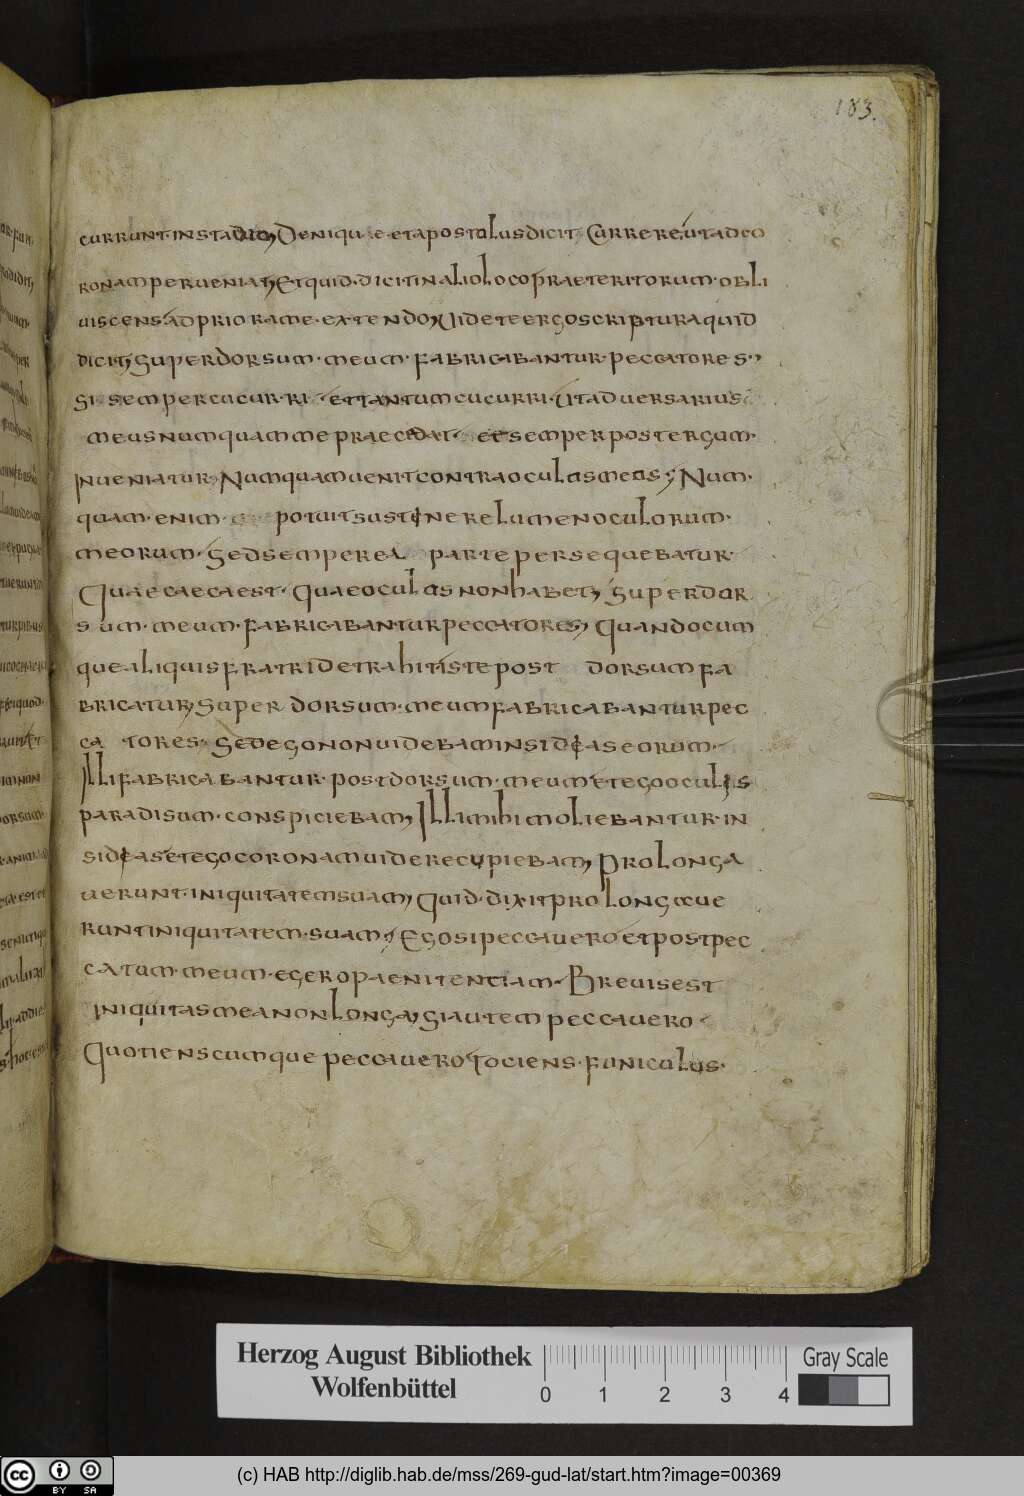 183.
currunt·instadio; Denique et apostolus dicit· Curre re, ut ad co
ronam perueniat; Et quid·dicit in alio loco praeteritorum·obli
uiscens ad priora me·extendo; Uidete ergo scriptura quid
dicit; Super dorsum·meum·fabricabantur·peccatores·;
Si semper cucurri et tantum cucurri· Ut aduersarius
meus numquam me praecedat· et semper post ergum·
inueniatur; Numquam uenit contra oculos meos; Num·
quam·enim· potuit sustinere lumen oculorum·
meorum· Sed semper ea parte persequebatur·
Quae caeca est· Quae oculos non habet; Super dor
sum·meum·fabricabantur peccatores; Quandocum
que aliquis fratri detrahit iste post dorsum fa
bricatur; Super dorsum·meum fabricabantur pec
ca tores· Sed ego non uidebam insidias eorum·
Illi fabricabantur·post dorsum·meum et ego oculis
paradisum·conspiciebam; Illi mihi moliebantur·in
sidias et ego coronam uidere cupiebam; Prolonga
uerunt iniquitatem suam; Quid·dixit prolongaue
runt iniquitatem·suam; Ego si peccauero et post pec
catum·meum·egero paenitentiam· Breuis est
iniquitas mea non longa; Si autem peccauero·
Quotienscumque peccauero Tociens·funiculus·
Herzog August Bibliothek
Wolfenbüttel
0 1 2 3 4
Gray Scale
cc BY SA
(c) HAB http://diglib.hab.de/mss/269-gud-lat/start.htm?image=00369